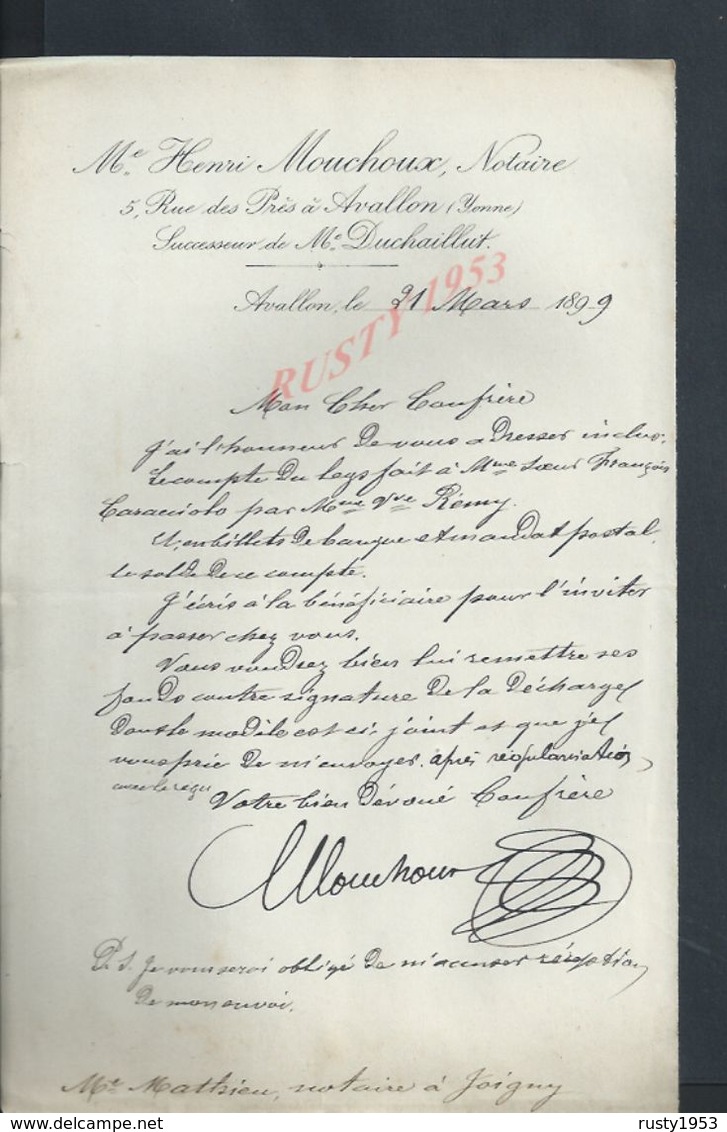 Me. Henri Mouchoux, Notaire
5, Rue des Près à Avallon (Yonne)
Successeur de Me. Duchaillut.
Avallon, le 21 Mars 1899
RUSTY 1953
Mon Cher Confrère
J'ai l'honneur de vous adresser inclus,
Le compte du legs fait à Mme Sœur François
Caracciolo par Mme Vve Rémy.
Et, en billets de banque et mandat postal,
le solde de ce compte.
J'écris à la bénéficiaire pour l'inviter
à passer chez vous.
Vous voudrez bien lui remettre ses
fonds contre signature de la décharge
dont le modèle est ci-joint et que je
vous prie de m'envoyer. après régularisation
avec le reçu
Votre bien dévoué Confrère
Mouchoux
P. S. Je vous serai obligé de m'accuser réception
de mon envoi.
Me Mathieu, notaire à Joigny
delcampe.net
rusty1953